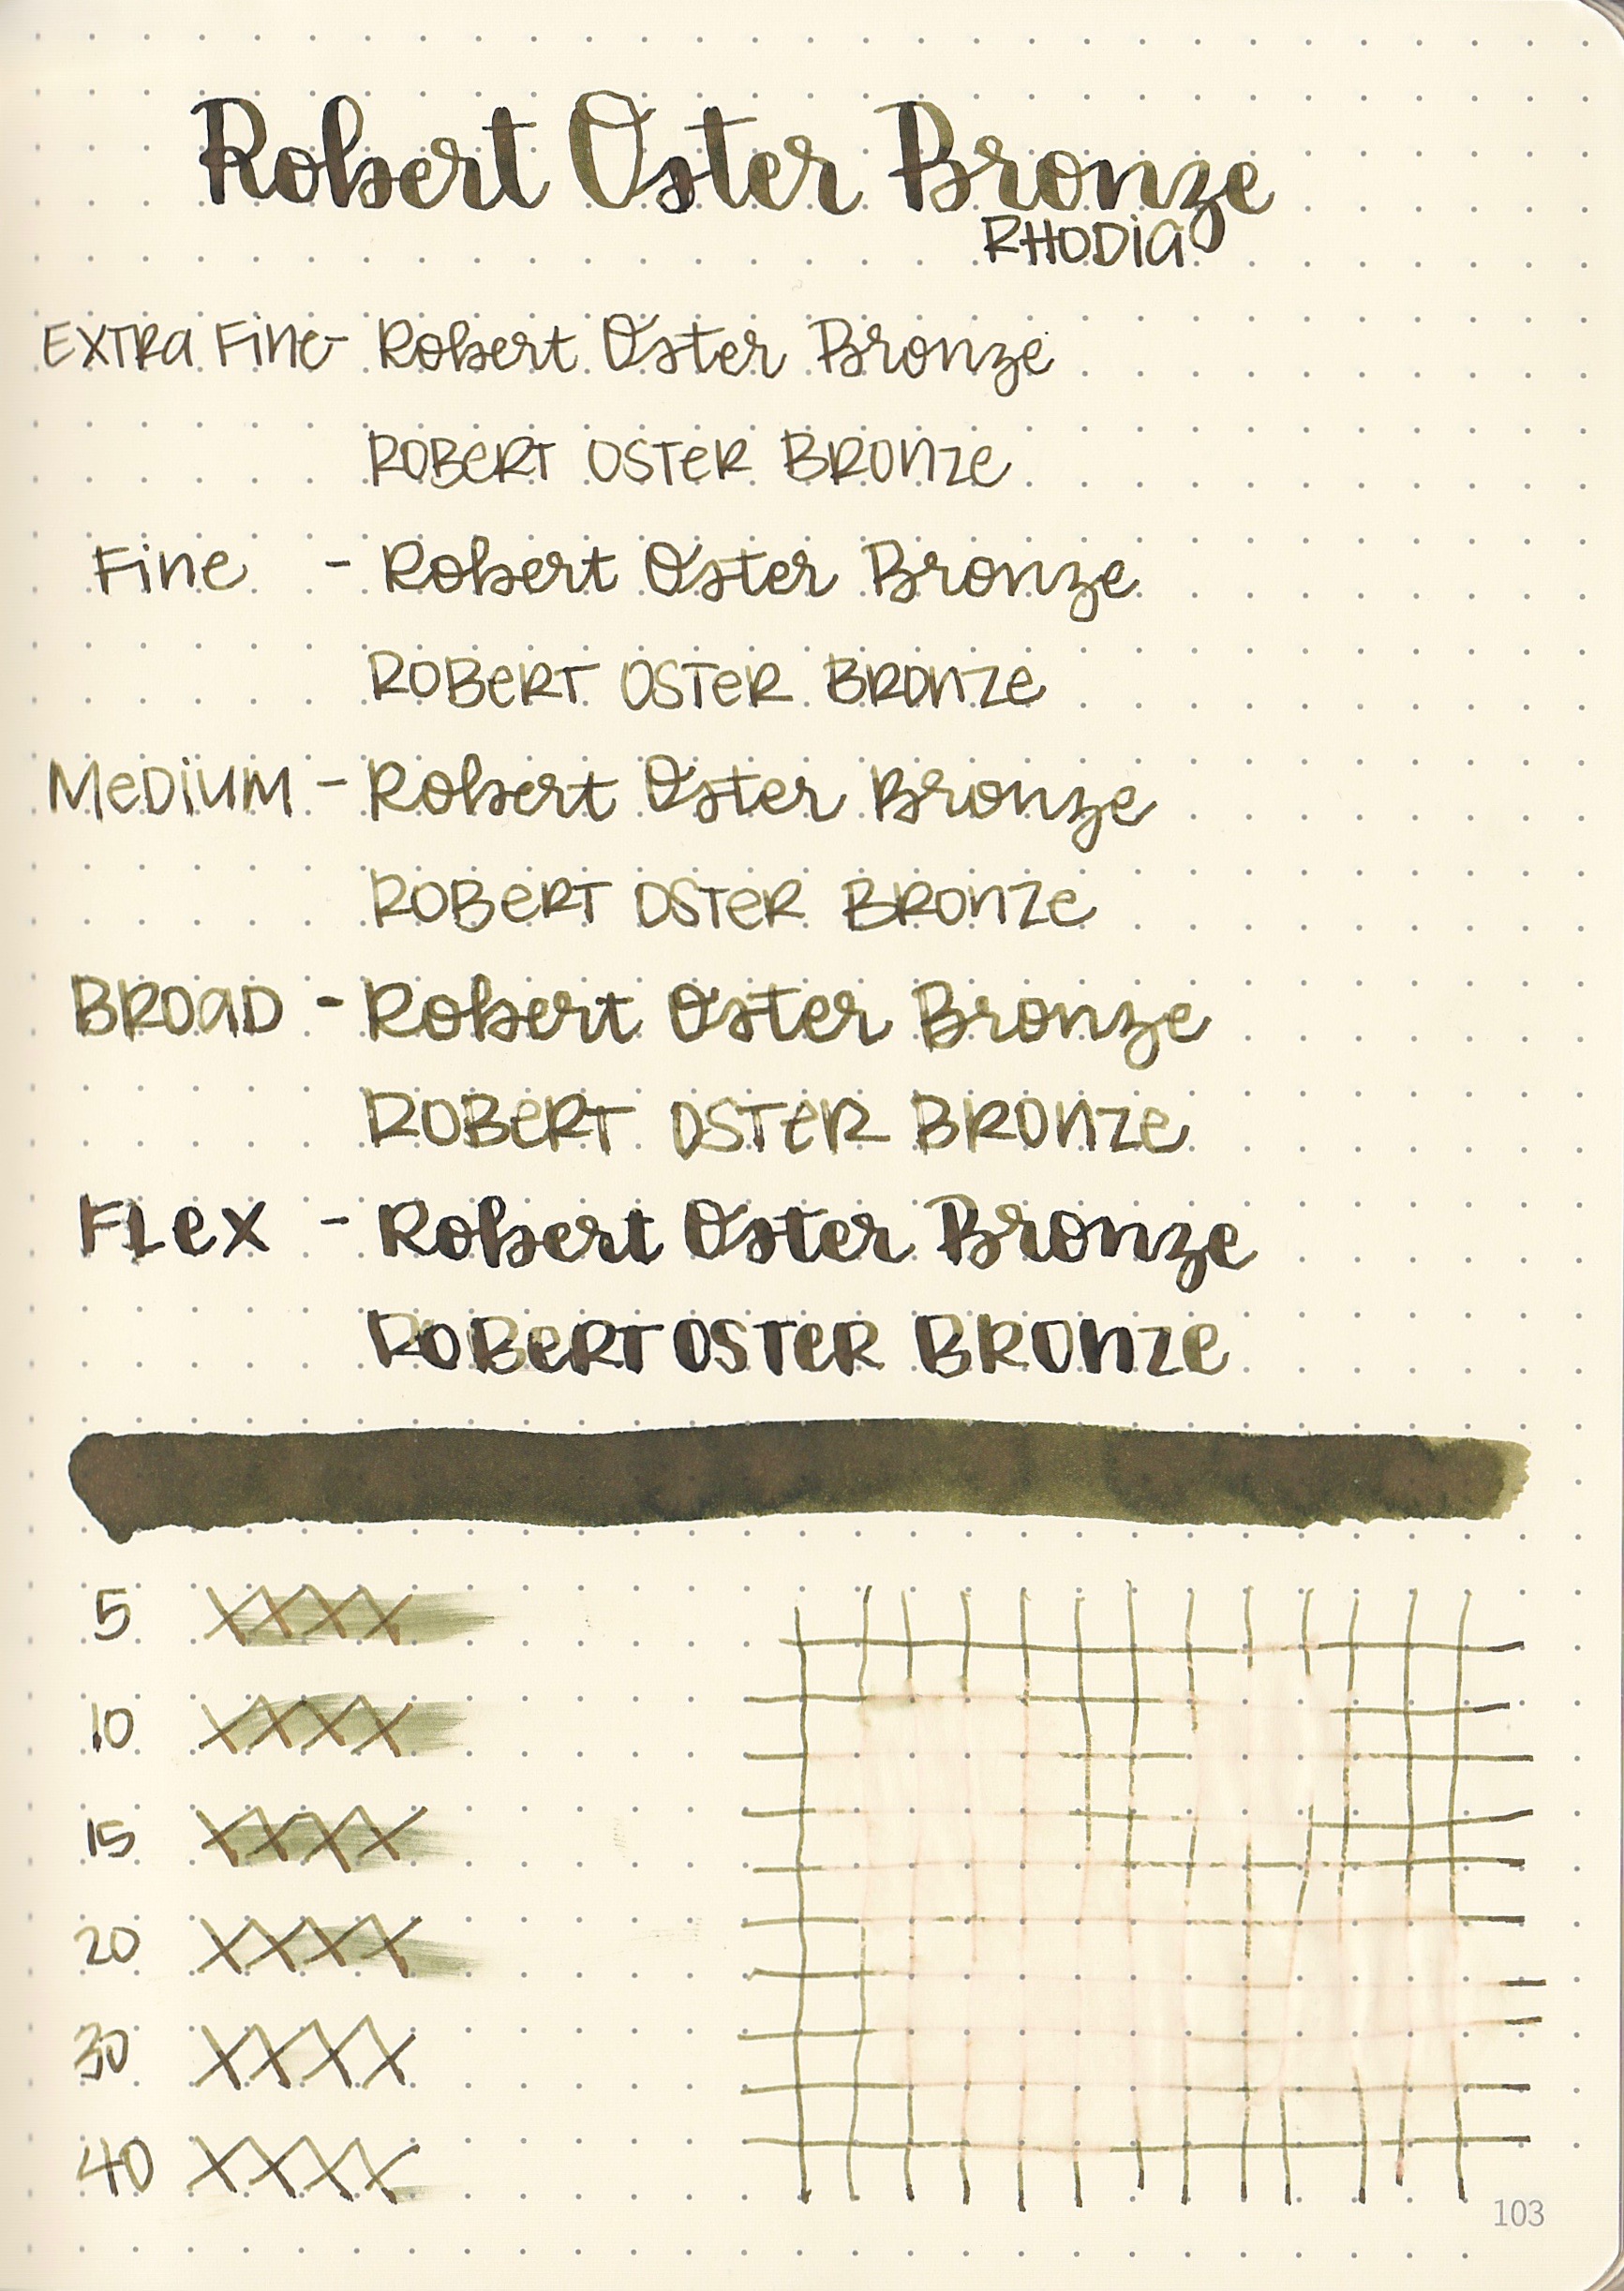 Robert Oster Bronze
RHODIA
EXTRA FINE - Robert Oster Bronze
ROBERT OSTER BRONZE
FINE - Robert Oster Bronze
ROBERT OSTER BRONZE
MEDIUM - Robert Oster Bronze
ROBERT OSTER BRONZE
BROAD - Robert Oster Bronze
ROBERT OSTER BRONZE
FLEX - Robert Oster Bronze
ROBERT OSTER BRONZE
5 XXXX
10 XXXX
15 XXXX
20 XXXX
30 XXXX
40 XXXX
103